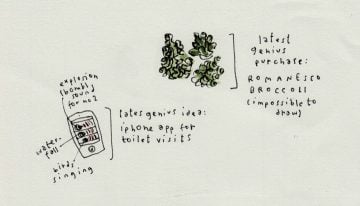 latest
genius
purchase:
ROMANESCO
BROCCOLI
(impossible to
draw)
explosion
(bomb)
soun
for no2
lates genius idea:
iphone app for
toilet visits
water-
fall
birds
singing